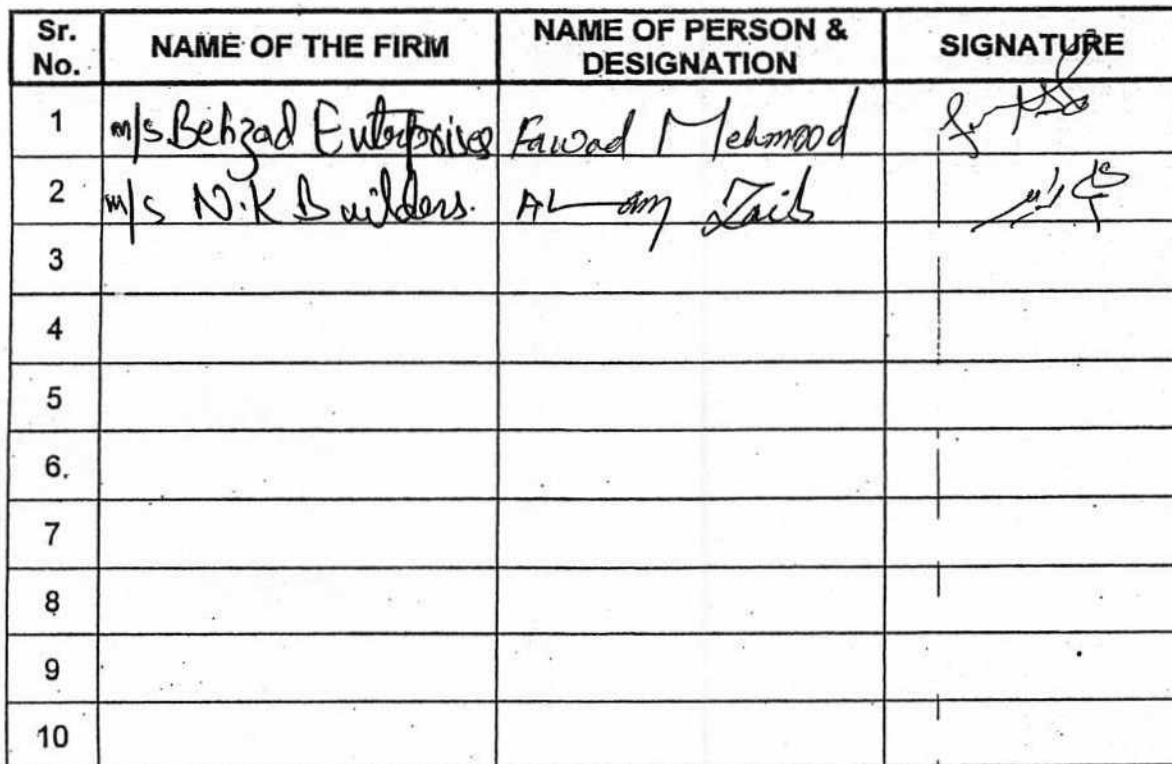 Sr. No. NAME OF THE FIRM NAME OF PERSON & DESIGNATION SIGNATURE
1 m/s. Behzad Enterprises Fawad Mehmood
2 m/s N.K Builders. Zaib
3
4
5
6.
7
8
9
10